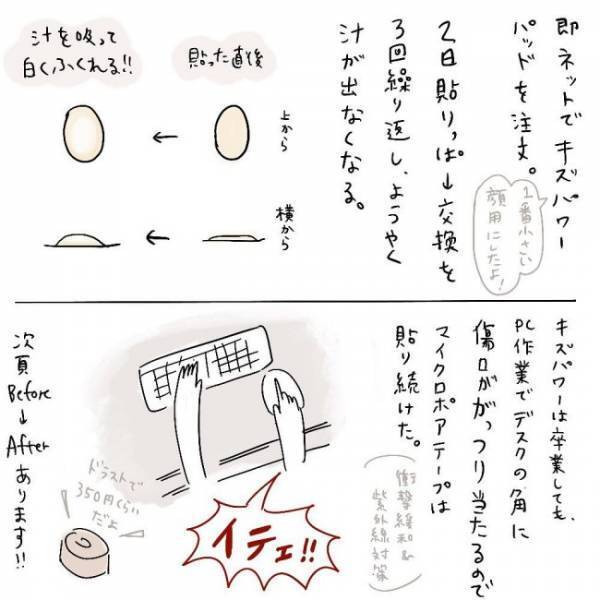 即ネットでキズパワー
パッドを注文。
1番小さい
顔用にしたよ!
2日貼りっぱ→交換を
3回繰り返し、ようやく
汁が出なくなる。
貼った直後
汁を吸って
白くふくれる!!
上から
横から
キズパワーは卒業しても、
PC作業でデスクの角に
傷口ががっつり当たるので
マイクロポアテープは
貼り続けた。
衝撃緩和&
紫外線対策
イテェ!!
ドラストで
350円くらい
だよ
次頁
Before
↓
After
あります!!